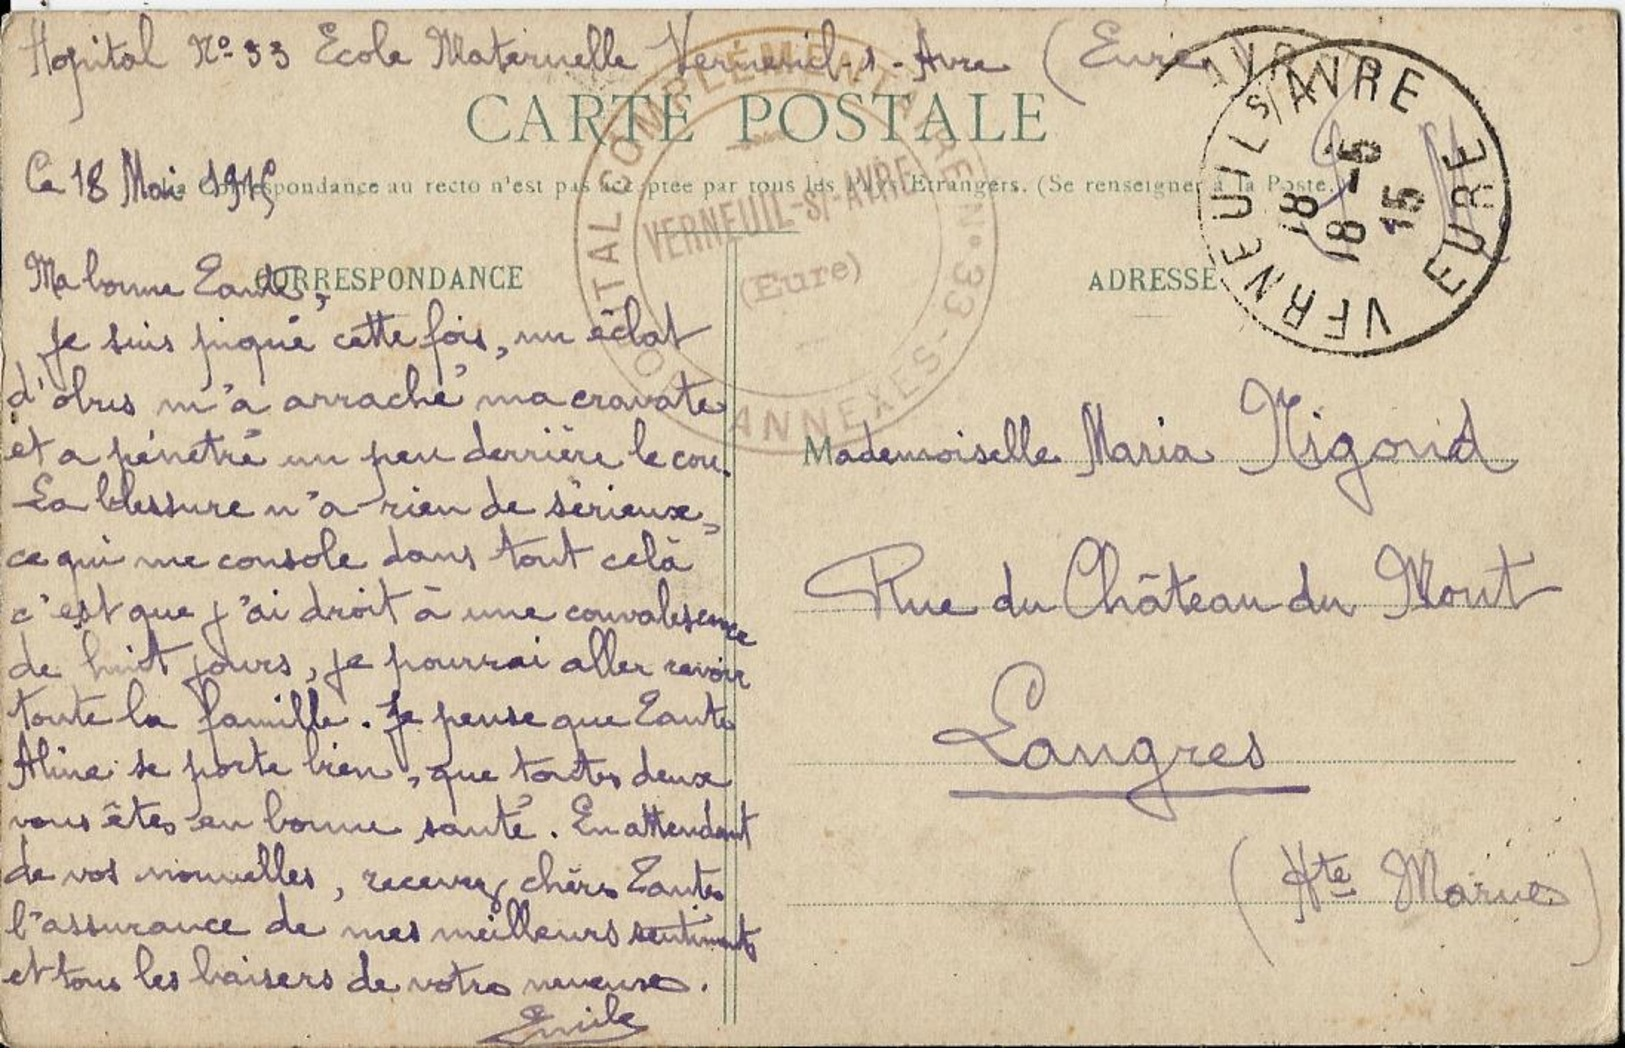 Hopital No 33 Ecole Maternelle Verneuil-s-Avre (Eure)
CARTE POSTALE
Ce 18 Mai 1915
La Correspondance au recto n'est pas acceptée par tous les Pays Etrangers. (Se renseigner à la Poste.)
CORRESPONDANCE
ADRESSE
HOPITAL COMPLEMENTAIRE N° 33 - ANNEXES -
VERNEUIL-S/-AVRE
(Eure)
VERNEUIL S/AVRE
EURE
18
18-5
15
Ma bonne Tante,
Je suis piqué cette fois, un éclat
d'obus m'a arraché ma cravate
et a pénétré un peu derrière le cou.
La blessure n'a rien de sérieux,
ce qui me console dans tout celà
c'est que j'ai droit à une convalescence
de huit jours, je pourrai aller revoir
toute la famille. Je pense que Tante
Aline se porte bien, que toutes deux
vous êtes en bonne santé. En attendant
de vos nouvelles, recevez chères Tantes
l'assurance de mes meilleurs sentiments
et tous les baisers de votre neveuse.
Emile
Mademoiselle Maria Nigond
Rue du Château du Mont
Langres
(Hte Marne)